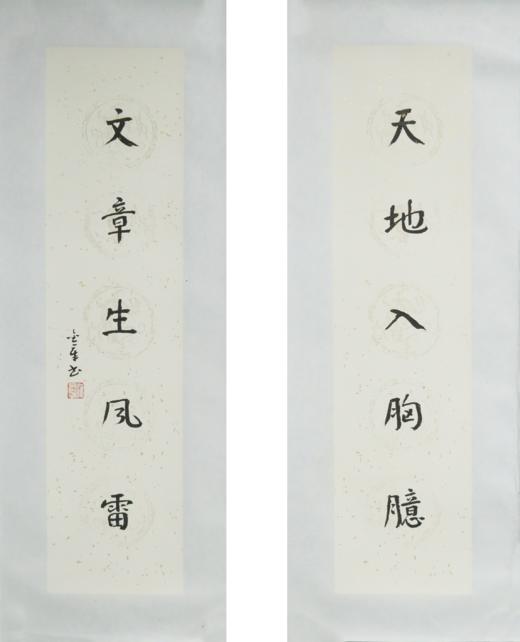 天地入胸臆
文章生风雷